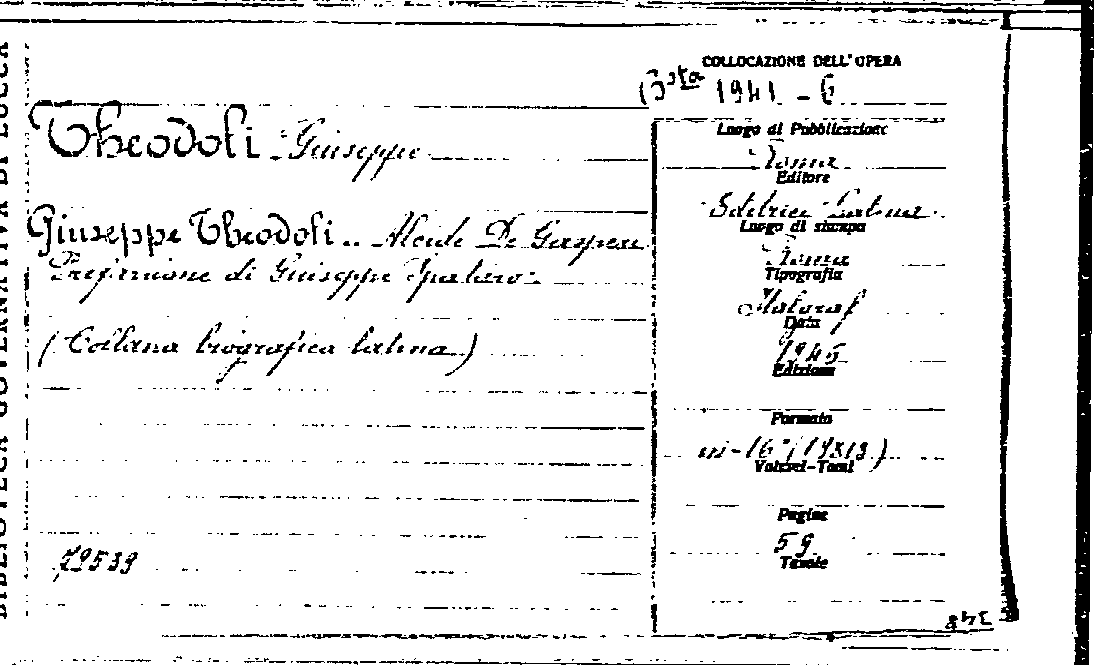 BIBLIOTECA GOVERNATIVA DI LUCCA
COLLOCAZIONE DELL'OPERA
Bsta 1941 - 6
Theodoli - Giuseppe
Giuseppe Theodoli - Alcide De Gasperi
Prefazione di Giuseppe Spataro -
(Collana biografica latina)
79539
Luogo di Pubblicazione
Roma
Editore
Editrice Latina
Luogo di stampa
Roma
Tipografia
Data
1945
Edizione
Formato
in-16° (19x13)
Volumi-Tomi
Pagine
59
Tavole